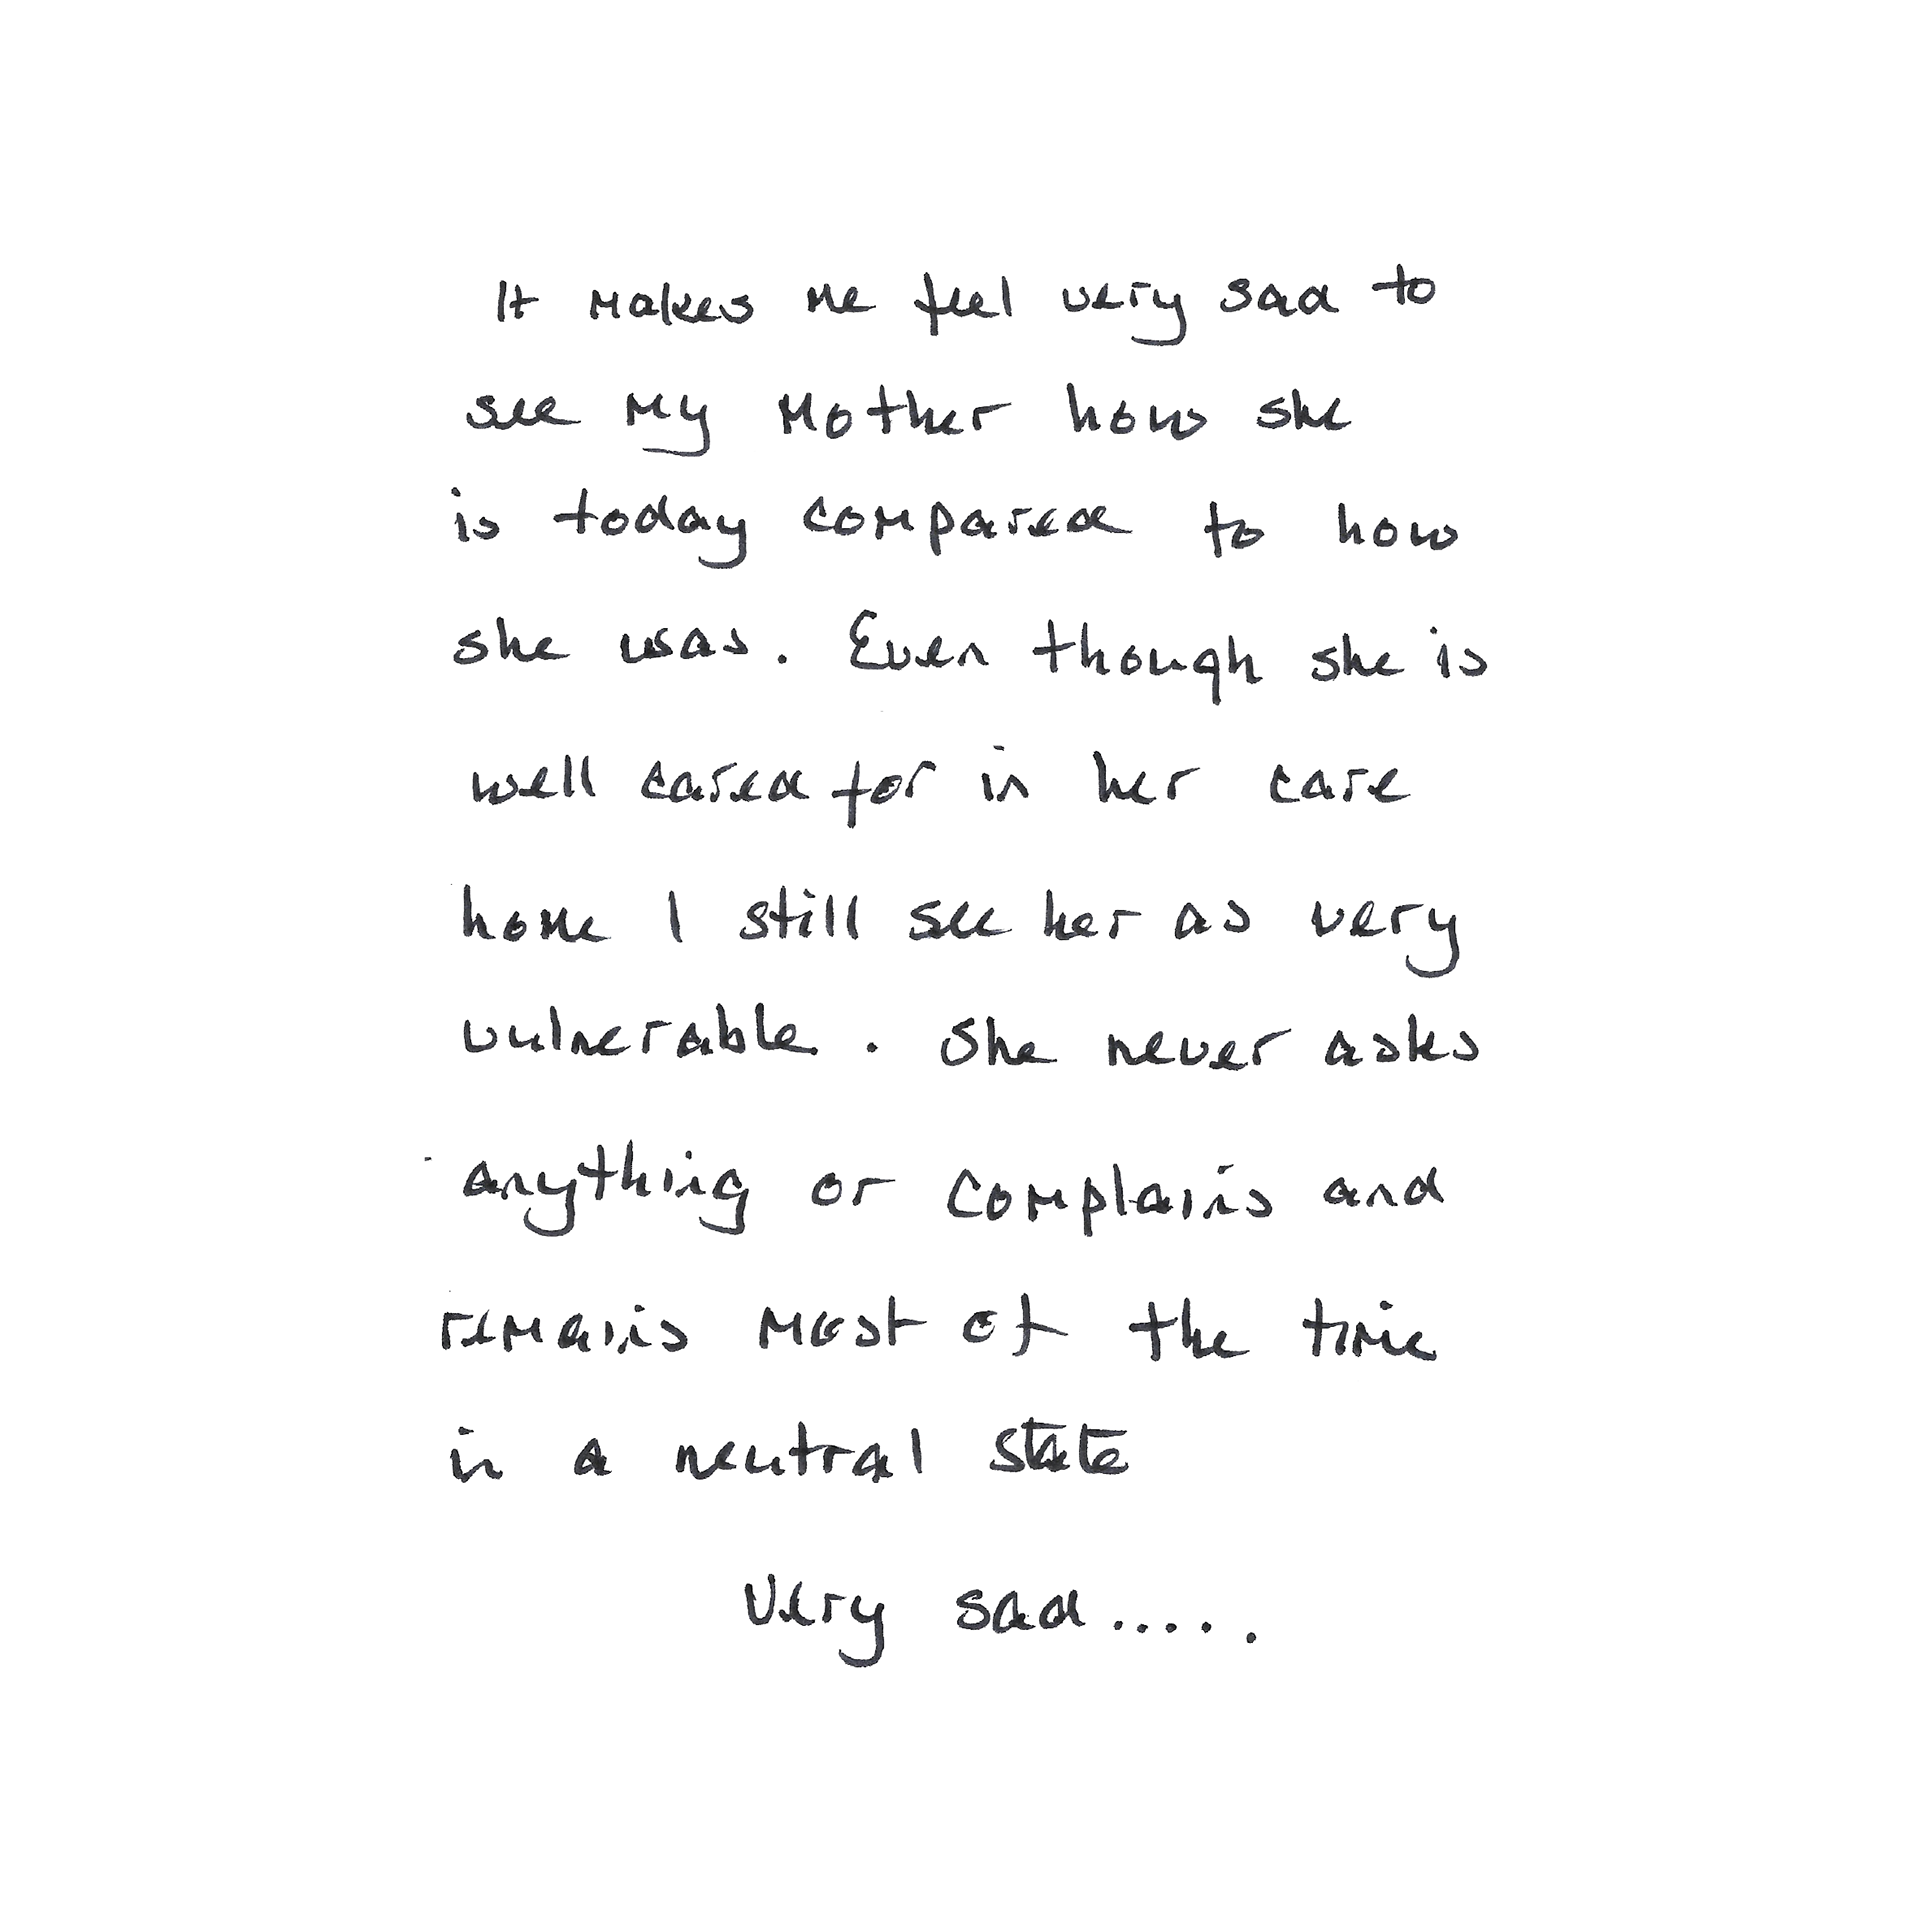 It makes me feel very sad to
see my mother how she
is today compared to how
she was. Even though she is
well cared for in her care
home I still see her as very
vulnerable. She never asks
anything or complains and
remains most of the time
in a neutral state
Very sad.....